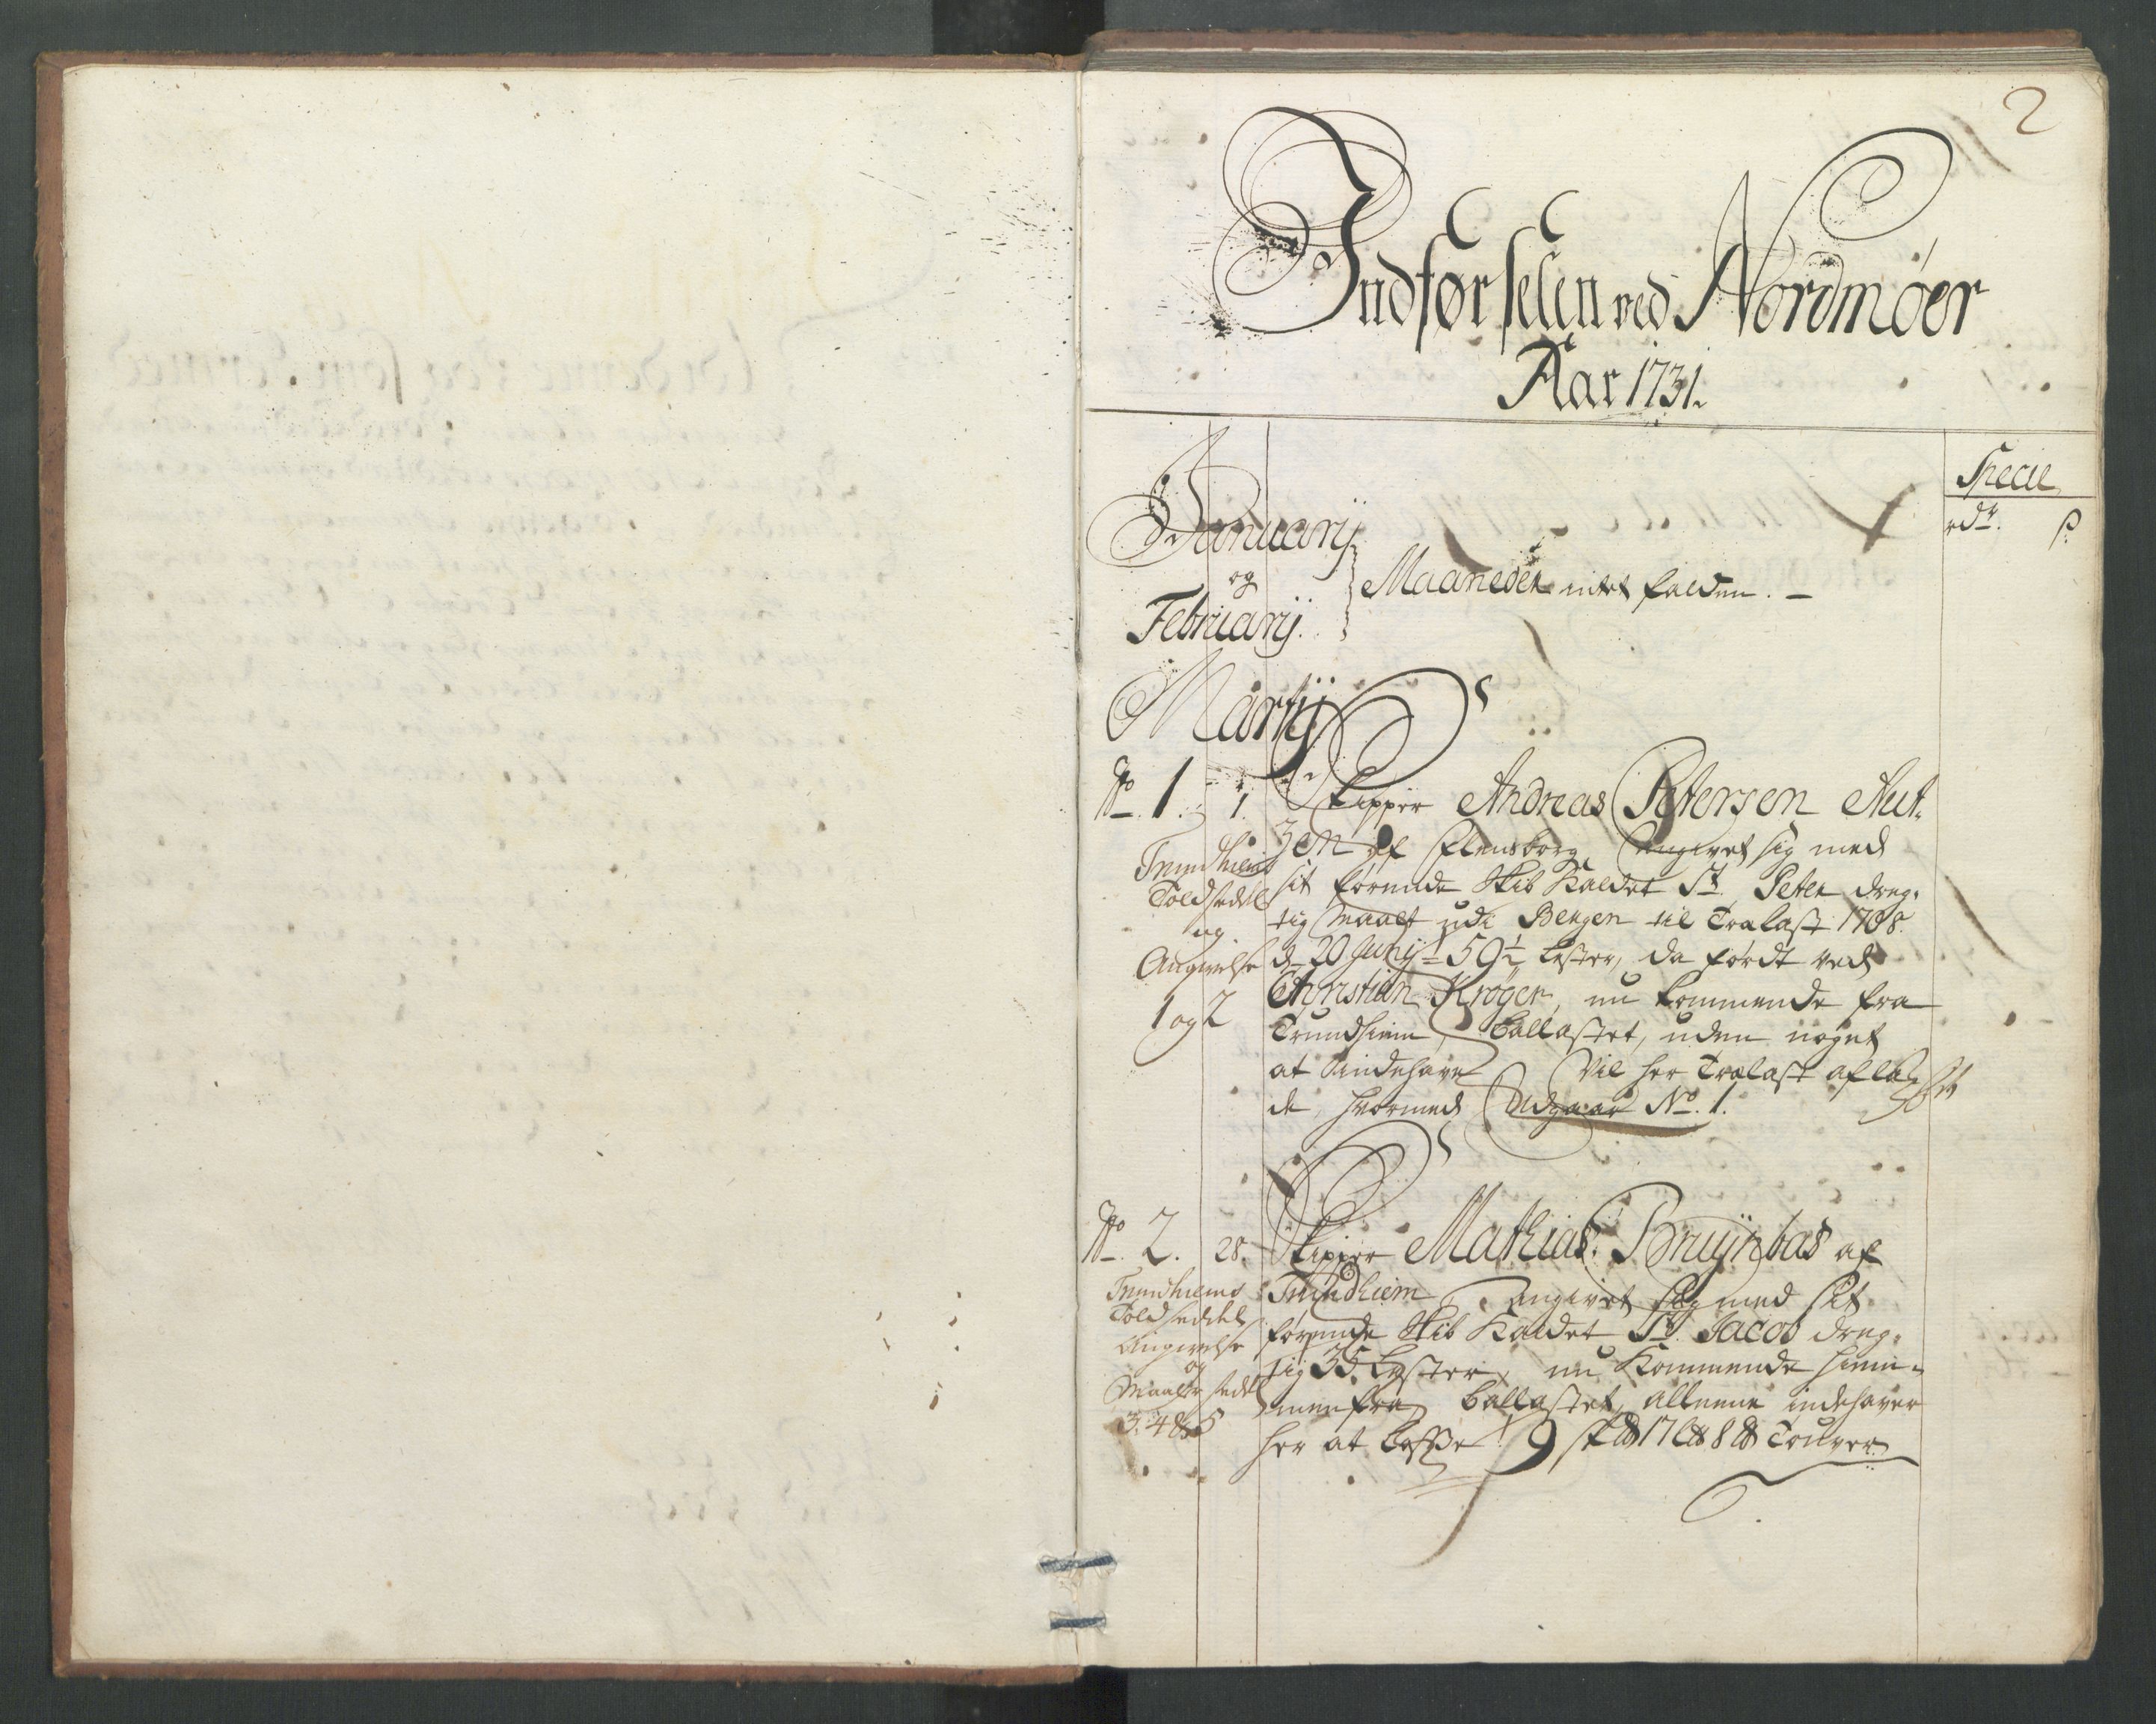 2
Indførselen ved Nordmøer
Aar 1731.
Specie
rdr. ß
Januarij
og
Februarij.
Maaneder intet falden.
Martij
No. 1. 1. Skipper Andreas Petersen Aut-
zen af Flensborg, Angivet sig med
sit førende Skib Kaldet St. Peter dreg-
tig Maalt udi Bergen til Tralast 1708.
d. 20 Junij 59½ Lester, da førdt ved
Christian Krøger, nu kommende fra
Trundhiem, Ballastet, uden noget
at Indehave. Vil her Tralast afla-
de, hvormed Udgaar No. 1.
Trundhiems
Toldsedel
og
Angivelse
1 og 2
No. 2. 28. Skipper Mathias Bruÿnbas af
Trundhiem, Angivet sig med sit
førende Skib Kaldet St. Jacob dreg-
tig 35 Lester, nu Kommende hiem-
men fra Ballastet, alleene indehaver
her at losse 9 sk℔ 17 L℔ 8 ℔ Touver
Trundhiems
Toldseddel
Angivelse
og
Maalesedel
3. 4 & 5